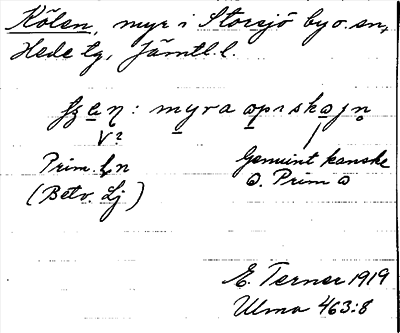 Kölen, myr i Storsjö by o. sn,
Hede tg, Jämtl. l.
: myra
V?
Prim.
Genuint kanske
(Betv. Lj)
Prim
E. Terner 1919
Ulma 463:8